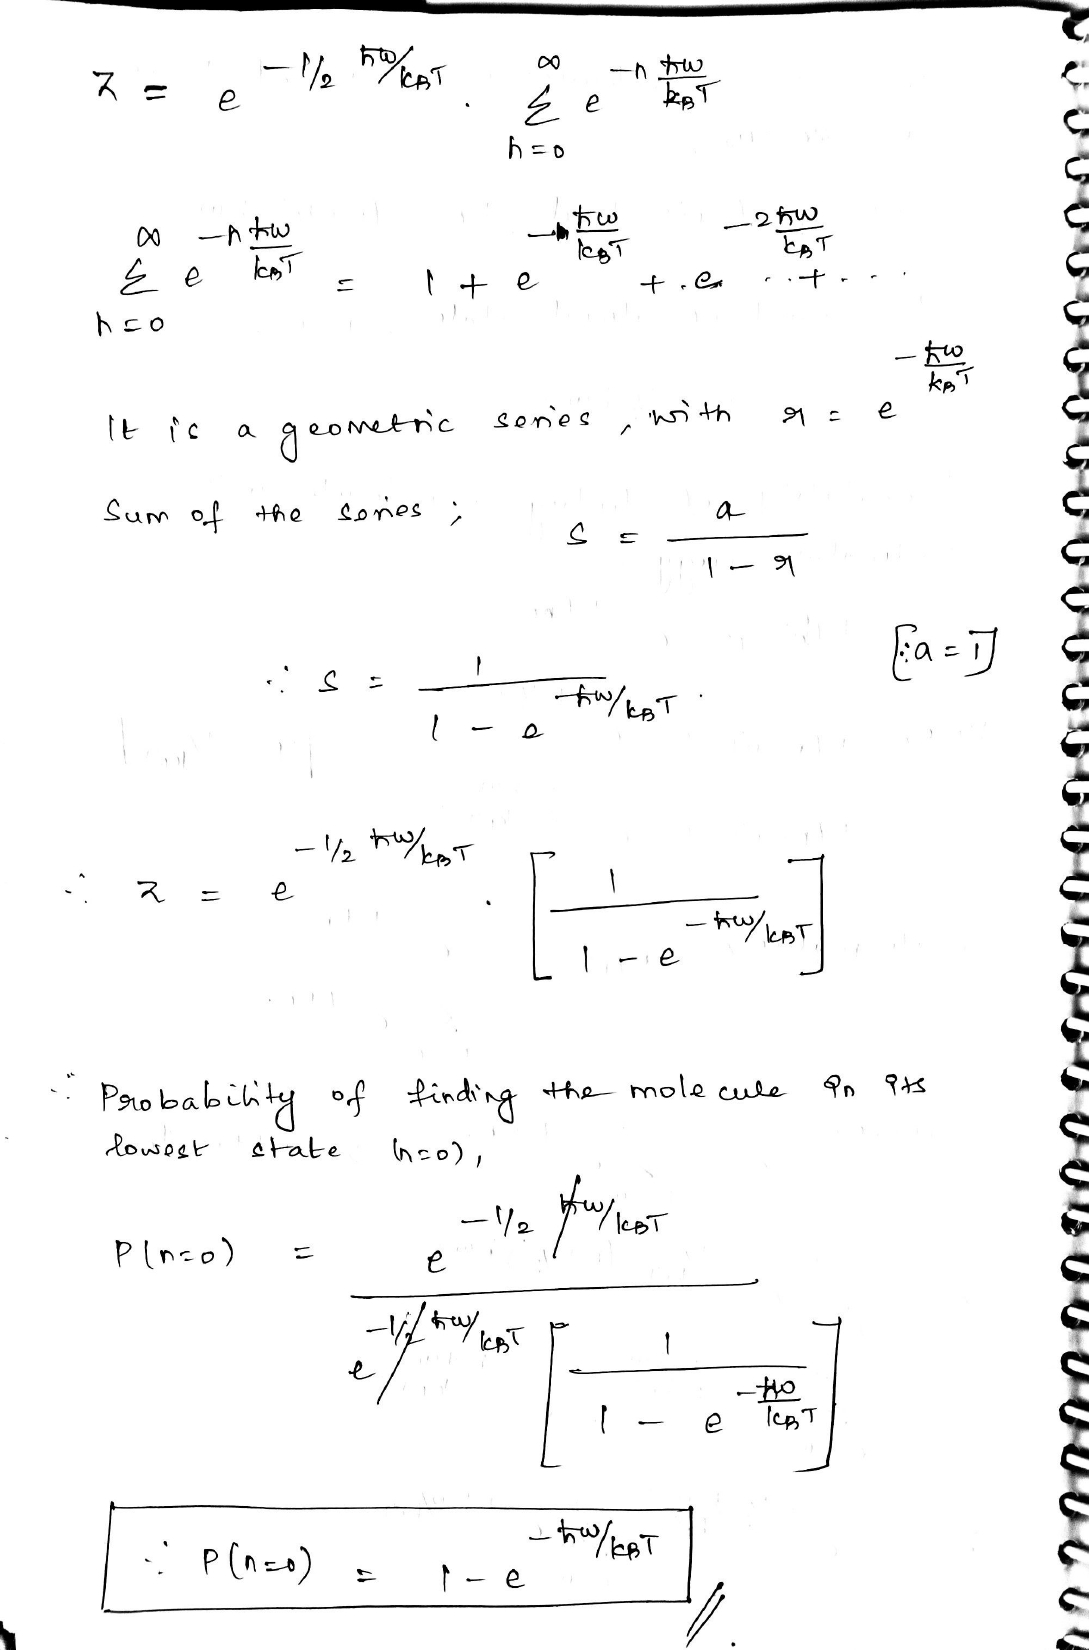 Z = e^{-1/2 ħω/k_BT} . Σ_{n=0}^{∞} e^{-n ħω/k_BT}
Σ_{n=0}^{∞} e^{-n ħω/k_BT} = 1 + e^{-ħω/k_BT} + . e^{-2ħω/k_BT} ..+...
It is a geometric series, with r = e^{-ħω/k_BT}
Sum of the series; S = a/(1 - r)
∴ S = 1/(1 - e^{-ħω/k_BT}) . [∵ a = 1]
∴ Z = e^{-1/2 ħω/k_BT} . [1/(1 - e^{-ħω/k_BT})]
∴ Probability of finding the molecule in its
lowest state (n=0),
P(n=0) = e^{-1/2 ħω/k_BT} / e^{-1/2 ħω/k_BT} [1/(1 - e^{-ħω/k_BT})]
∴ P(n=0) = 1 - e^{-ħω/k_BT} //.